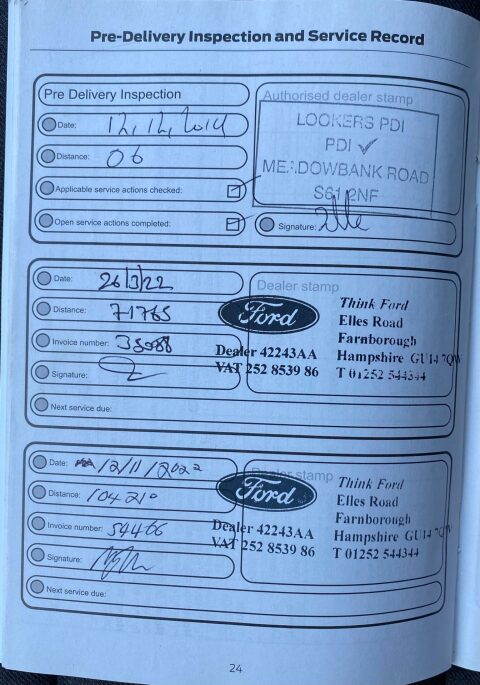 Pre-Delivery Inspection and Service Record
Pre Delivery Inspection
Authorised dealer stamp
Date: 12,12,2019
LOOKERS PDI
PDI ✓
Distance: 06
MEADOWBANK ROAD
Applicable service actions checked:
S61 2NF
Open service actions completed:
Signature:
Date: 26/3/22
Dealer stamp
Distance: 71765
Ford
Think Ford
Elles Road
Invoice number: 38088
Farnborough
Dealer 42243AA
Hampshire GU14 7QW
Signature:
VAT 252 8539 86
T 01252 544344
Next service due:
Date: 12/11/2022
Dealer stamp
Distance: 104210
Ford
Think Ford
Elles Road
Invoice number: 54466
Farnborough
Dealer 42243AA
Hampshire GU14 7QW
Signature:
VAT 252 8539 86
T 01252 544344
Next service due:
24